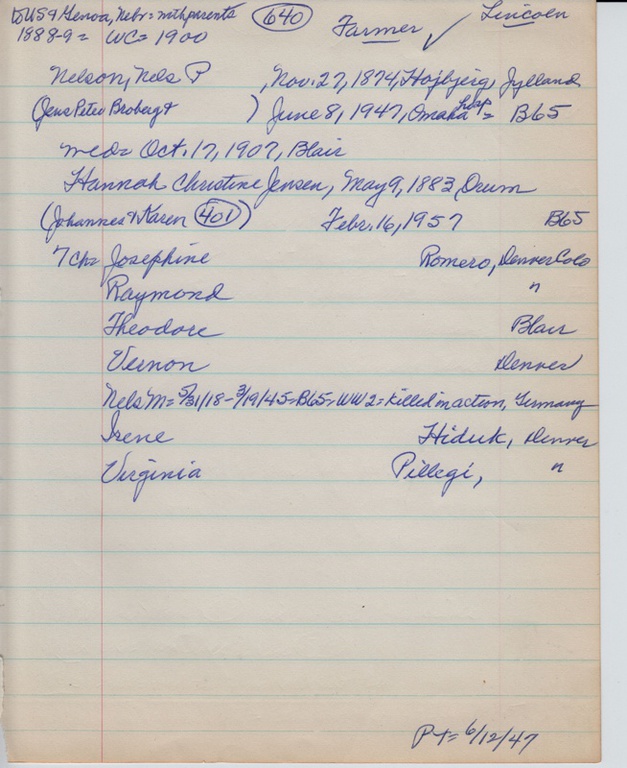 to US & Genoa, Nebr = with parents 640 Farmer ✓ Lincoln
1888-9 = WC = 1900
Nelson, Nels P , Nov. 27, 1874, Hojbjerg, Jylland
(Jens Peter Broberg & ) June 8, 1947, Omaha hosp = B65
med = Oct. 17, 1907, Blair
Hannah Christine Jensen, May 9, 1883, Orum
(Johannes & Karen 401) Febr. 16, 1957 B65
7 ch = Josephine Romero, Denver Colo
Raymond "
Theodore Blair
Vernon Denver
Nels M = 5/31/18 - 3/19/45 = B65 = WW2 = killed in action, Germany
Irene Hiduk, Denver
Virginia Pillegi, "
P-T = 6/12/47